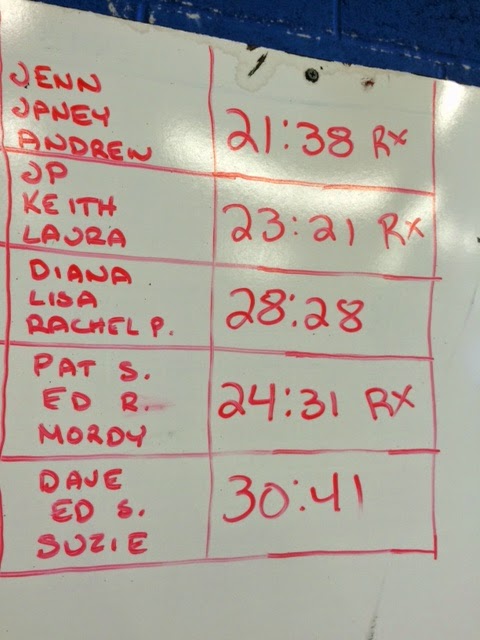 JENN
JPNEY
ANDREW
21:38 Rx
JP
KEITH
LAURA
23:21 Rx
DIANA
LISA
RACHEL P.
28:28
PAT S.
ED R.
MORDY
24:31 RX
DAVE
ED S.
SUZIE
30:41